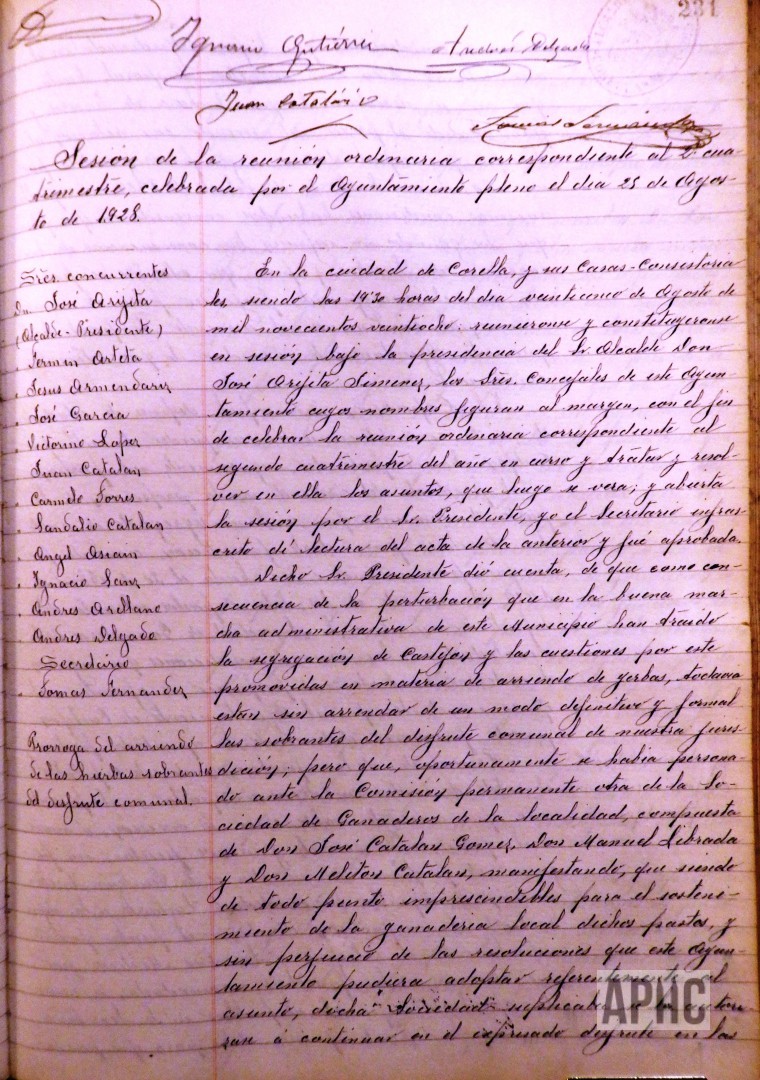 231
Ignacio Gutiérrez Andrés Delgado
Juan Catalán
Tomás Fernández
Sesión de la reunión ordinaria correspondiente al 2º cua-
trimestre, celebrada por el Ayuntamiento pleno el dia 25 de Agos-
to de 1928.
Sres. concurrentes
Dn. José Arijita
(Alcalde-Presidente)
" Fermin Arteta
" Jesus Armendariz
" José Garcia
" Victorino Lopez
" Juan Catalan
" Carmelo Torres
" Sandalio Catalan
" Angel Asiain
" Ignacio Sanz
" Andres Arellano
" Andres Delgado
Secretario
" Tomas Fernandez
Prorroga del arriendo
de las hierbas sobrantes
del disfrute comunal.
En la ciudad de Corella, y sus Casas-Consistoria
les siendo las 19'30 horas del dia veinticinco de Agosto de
mil novecientos veintiocho: reunieronse y constituyeronse
en sesión bajo la presidencia del Sr. Alcalde Don
José Arijita Simenez, los Sres. Concejales de este Ayun-
tamiento cuyos nombres figuran al margen, con el fin
de celebrar la reunión ordinaria correspondiente al
segundo cuatrimestre del año en curso y tratar y resol-
ver en ella los asuntos, que luego se vera; y abierta
la sesión por el Sr. Presidente, yo el Secretario infras-
crito dí lectura del acta de la anterior y fué aprobada.
Dicho Sr. Presidente dió cuenta, de que como con
secuencia de la perturbación que en la buena mar-
cha administrativa de este Municipio han traido
la segregación de Castejon y las cuestiones por este
promovidas en materia de arriendo de yerbas, todavia
estan sin arrendar de un modo definitivo y formal
las sobrantes del disfrute comunal de nuestra juris-
dición; pero que, oportunamente se habia persona-
do ante la Comisión permanente otra de la So-
ciedad de Ganaderos de la localidad, compuesta
de Don José Catalan Gomez, Don Manuel Librada
y Don Meliton Catalan, manifestando, que siendo
de todo punto imprescindibles para el sosteni-
miento de la ganaderia local dichos pastos, y
sin perjuicio de las resoluciones que este Ayun-
tamiento pudiera adoptar referentemente al
asunto, dicha Sociedad suplicaba se le autori-
sase á continuar en el expresado disfrute en las
АРНС